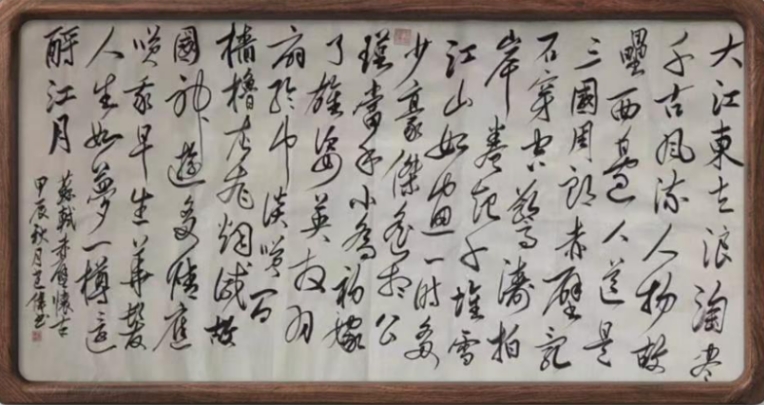 大江東去浪淘盡
千古風流人物故
壘西邊人道是
三國周郎赤壁乱
石穿空驚濤拍
岸卷起千堆雪
江山如畫一時多
少豪傑遙想公
瑾當年小喬初嫁
了雄姿英发羽
扇綸巾談笑間
檣櫓灰飛烟滅故
國神遊多情應
笑我早生華髮
人生如夢一樽還
酹江月
蘇軾赤壁懷古
甲辰秋月書